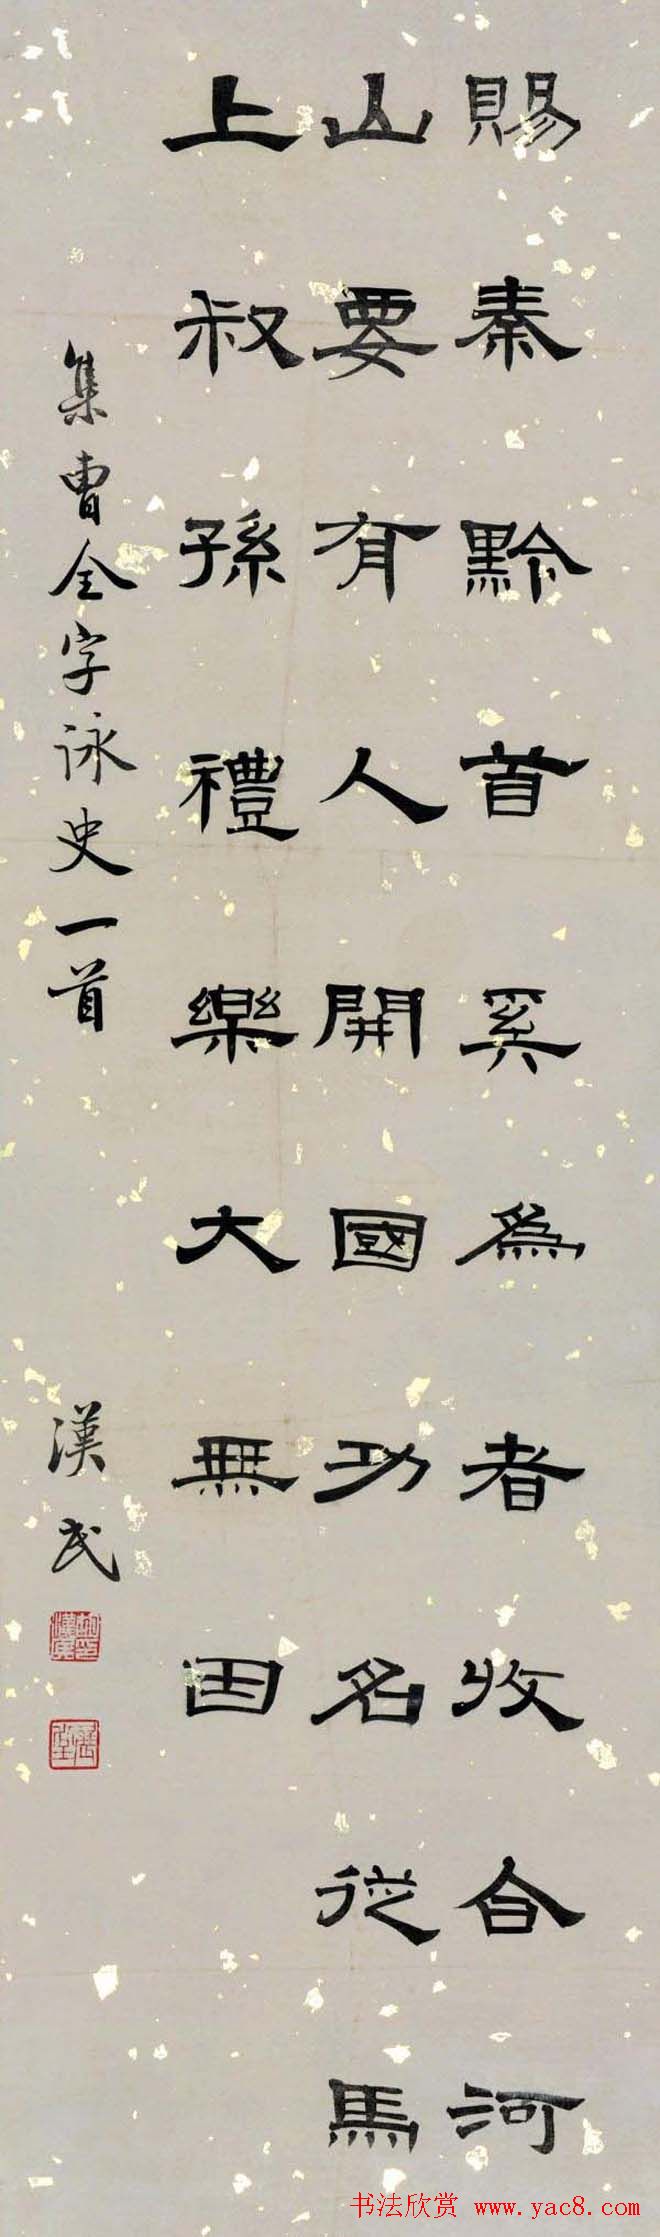 賜秦黔首奚爲者收合河
山要有人開國功名從馬
上叔孫禮樂大無因
集曹全字詠史一首
漢民
书法欣赏 www.yac8.com